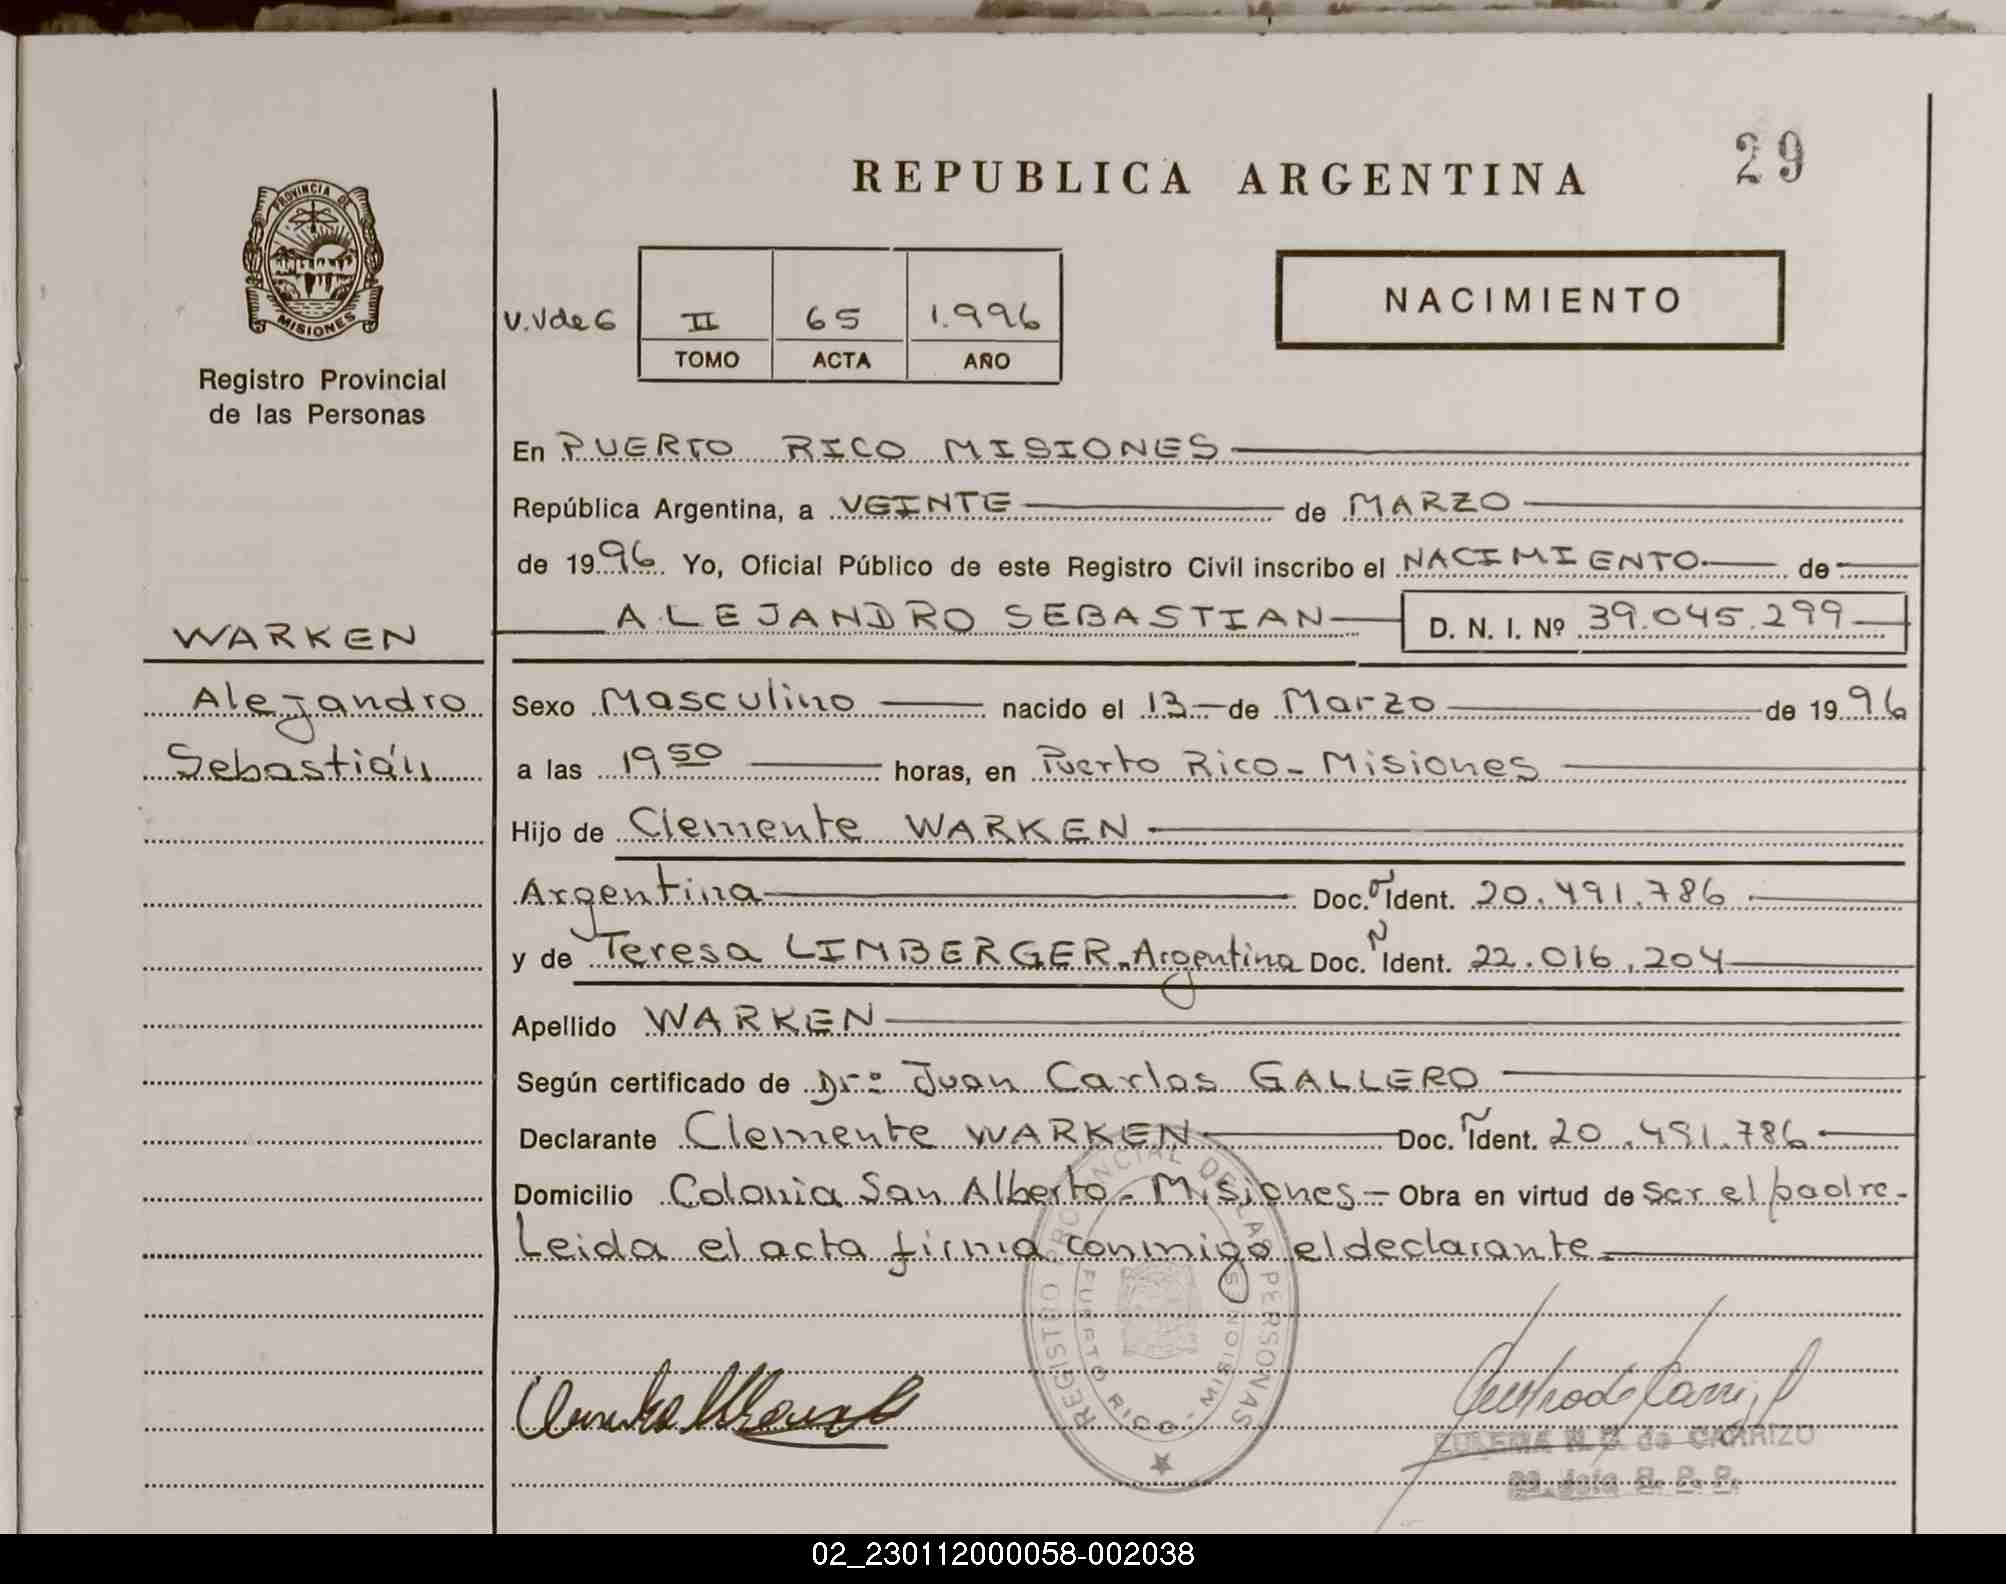 REPUBLICA ARGENTINA
29
PROVINCIA DE
MISIONES
Registro Provincial
de las Personas
NACIMIENTO
II 65 1.996
TOMO ACTA AÑO
En PUERTO RICO MISIONES
República Argentina, a VEINTE de MARZO
de 1996 Yo, Oficial Público de este Registro Civil inscribo el NACIMIENTO de
ALEJANDRO SEBASTIAN D. N. I. Nº 39.045.299
WARKEN
Alejandro
Sebastián
Sexo Masculino nacido el 13 de Marzo de 1996
a las 19 50 horas, en Puerto Rico - Misiones
Hijo de Clemente WARKEN
Argentina Doc. Ident. 20.491.786
y de Teresa LIMBERGER - Argentina Doc. N Ident. 22.016.204
Apellido WARKEN
Según certificado de Dr: Juan Carlos GALLERO
Declarante Clemente WARKEN Doc. Ident. 20.491.786
Domicilio Colonia San Alberto - Misiones - Obra en virtud de ser el padre -
Leida el acta firma conmigo el declarante
REGISTRO PROVINCIAL DE LAS PERSONAS
PUERTO RICO - MISIONES
ZULEMA N. G. de CARRIZO
02_230112000058-002038